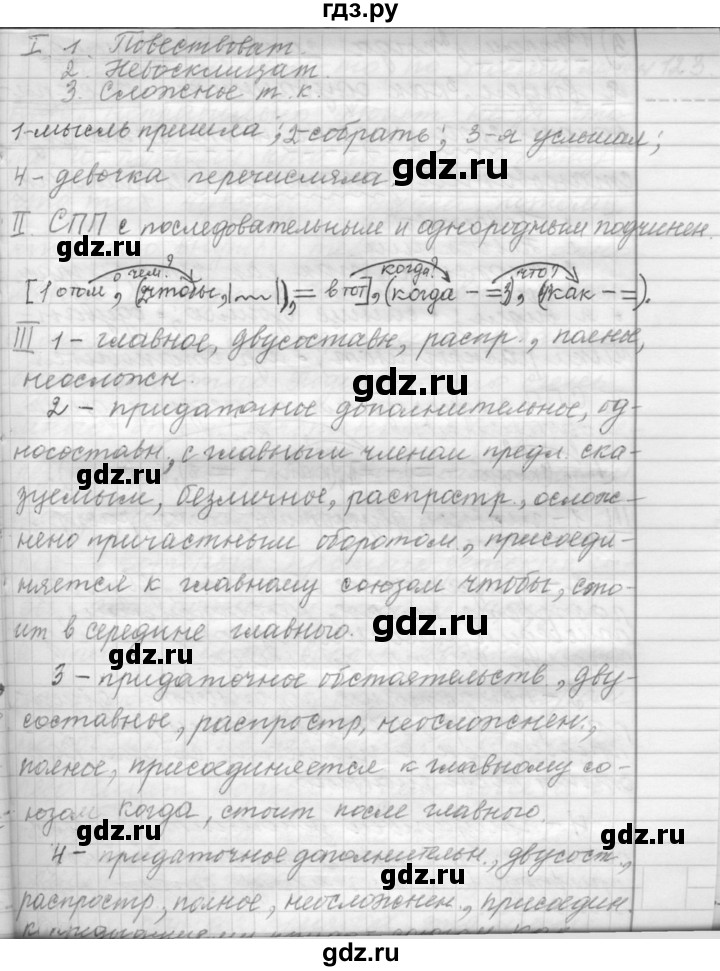 гдз.ру
I 1. Повествоват.
2. Невосклицат.
3. Сложное т.к.
№ 123
1-мысль пришла; 2-собрать; 3-я услышал;
4- девочка перечисляла
gdz.ru
II. СПП с последовательным и однородным подчинен.
о чём? когда? что?
[1 о том, (2чтобы, |~~|), = в тот], (когда - =3), (4как - =).
III 1- главное, двусоставн, распр., полное,
неосложн.
gdz.ru
2 - придаточное дополнительное, од-
носоставн, с главным членом предл. ска-
gdz.ru
зуемым, безличное, распростр., ослож-
gdz.ru
нено причастным оборотом, присоеди-
няется к главному союзом чтобы, сто-
ит в середине главного.
gdz.ru
gdz.ru
3 - придаточное обстоятельств, дву-
составное, распростр, неосложнен.,
полное, присоединяется к главному со-
юзом когда, стоит после главного.
gdz.ru
gdz.ru
4- придаточное дополнительн., двусост.,
распростр, полное, неосложнен., присоедин.
gdz.ru
gdz.ru